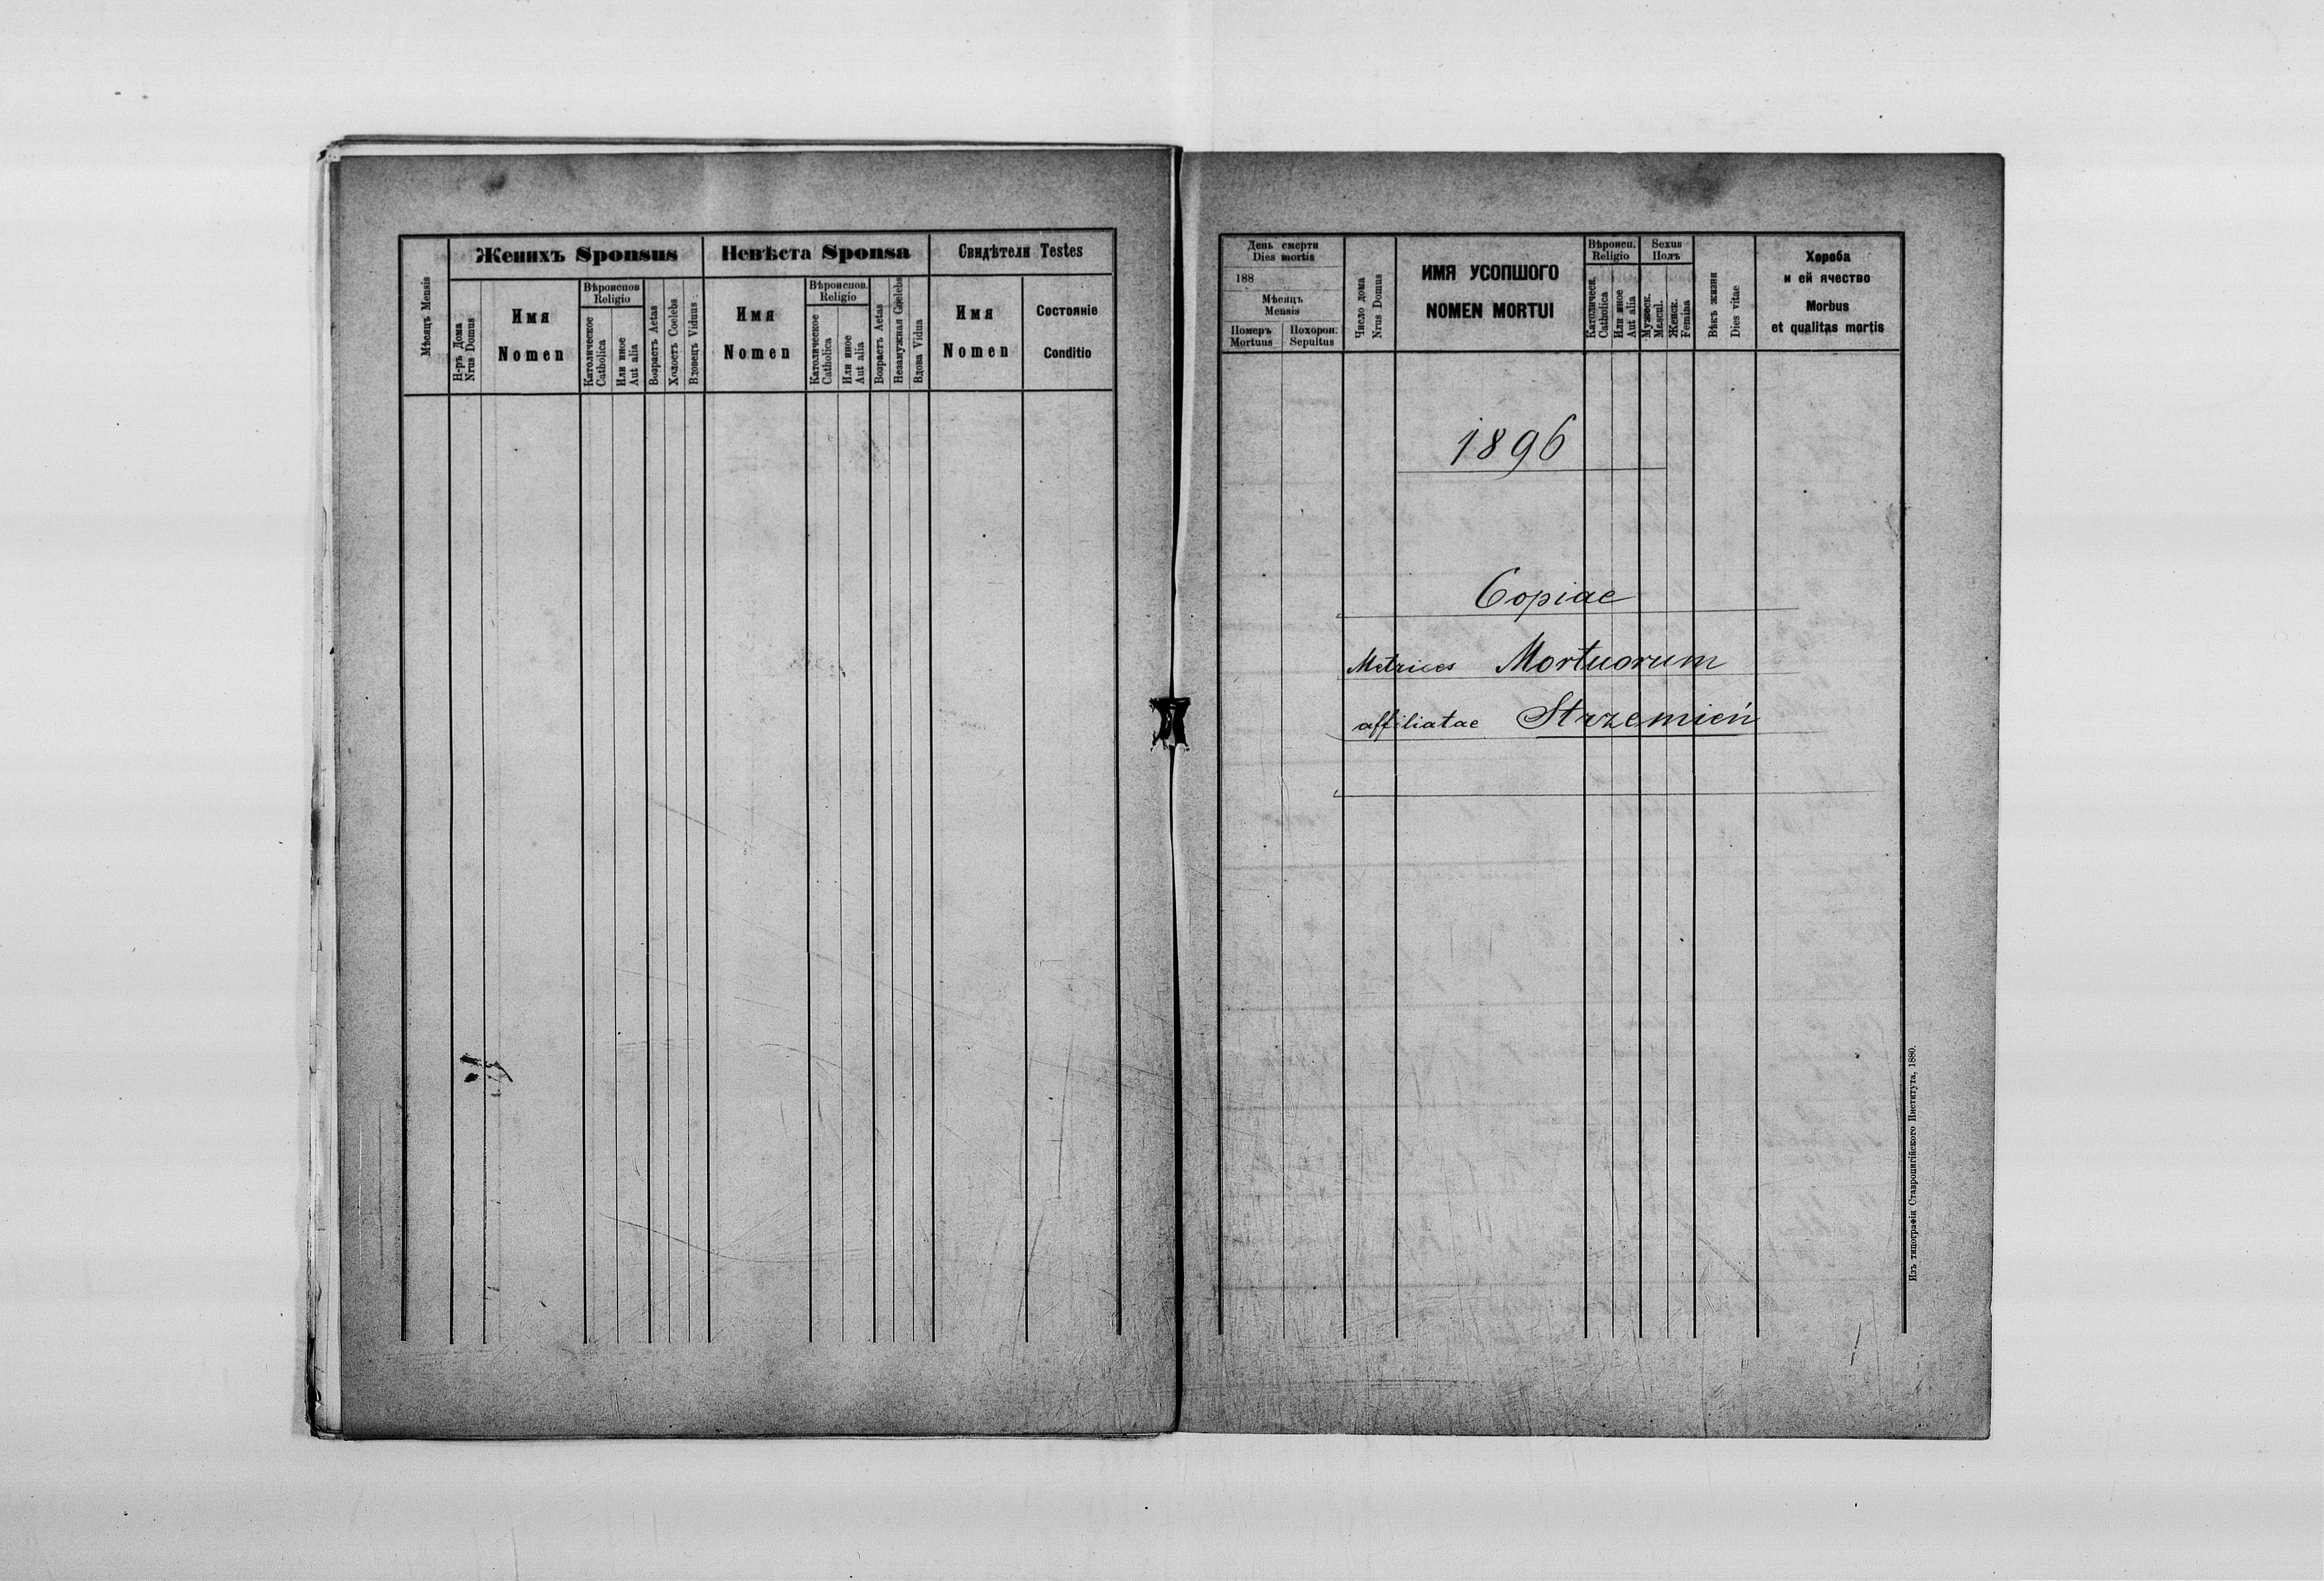 Женихъ Sponsus
Невѣста Sponsa
Свидѣтели Testes
Мѣсяцъ Mensis
Н-ръ Дома
Nrus Domus
Имя
Nomen
Вѣроиспов
Religio
Католическое
Catholica
Или иное
Aut alia
Возрастъ Aetas
Холостъ Coelebs
Вдовецъ Viduus
Имя
Nomen
Вѣроиспов.
Religio
Католическое
Catholica
Или иное
Aut alia
Возрастъ Aetas
Незамужная Coelebs
Вдова Vidua
Имя
Nomen
Состояніе
Conditio
День смерти
Dies mortis
188
Мѣсяцъ
Mensis
Померъ
Mortuus
Похорон:
Sepultus
Число дома
Nrus Domus
ИМЯ УСОПШОГО
NOMEN MORTUI
Вѣроисп.
Religio
Католическ.
Catholica
Или иное
Aut alia
Sexus
Полъ
Мужеск.
Mascul.
Женск.
Femina
Вѣкъ жизни
Dies vitae
Хороба
и ей ячество
Morbus
et qualitas mortis
1896
Copiae
Metrices Mortuorum
affiliatae Strzemień
Изъ типографіи Ставропигійского Института, 1880.